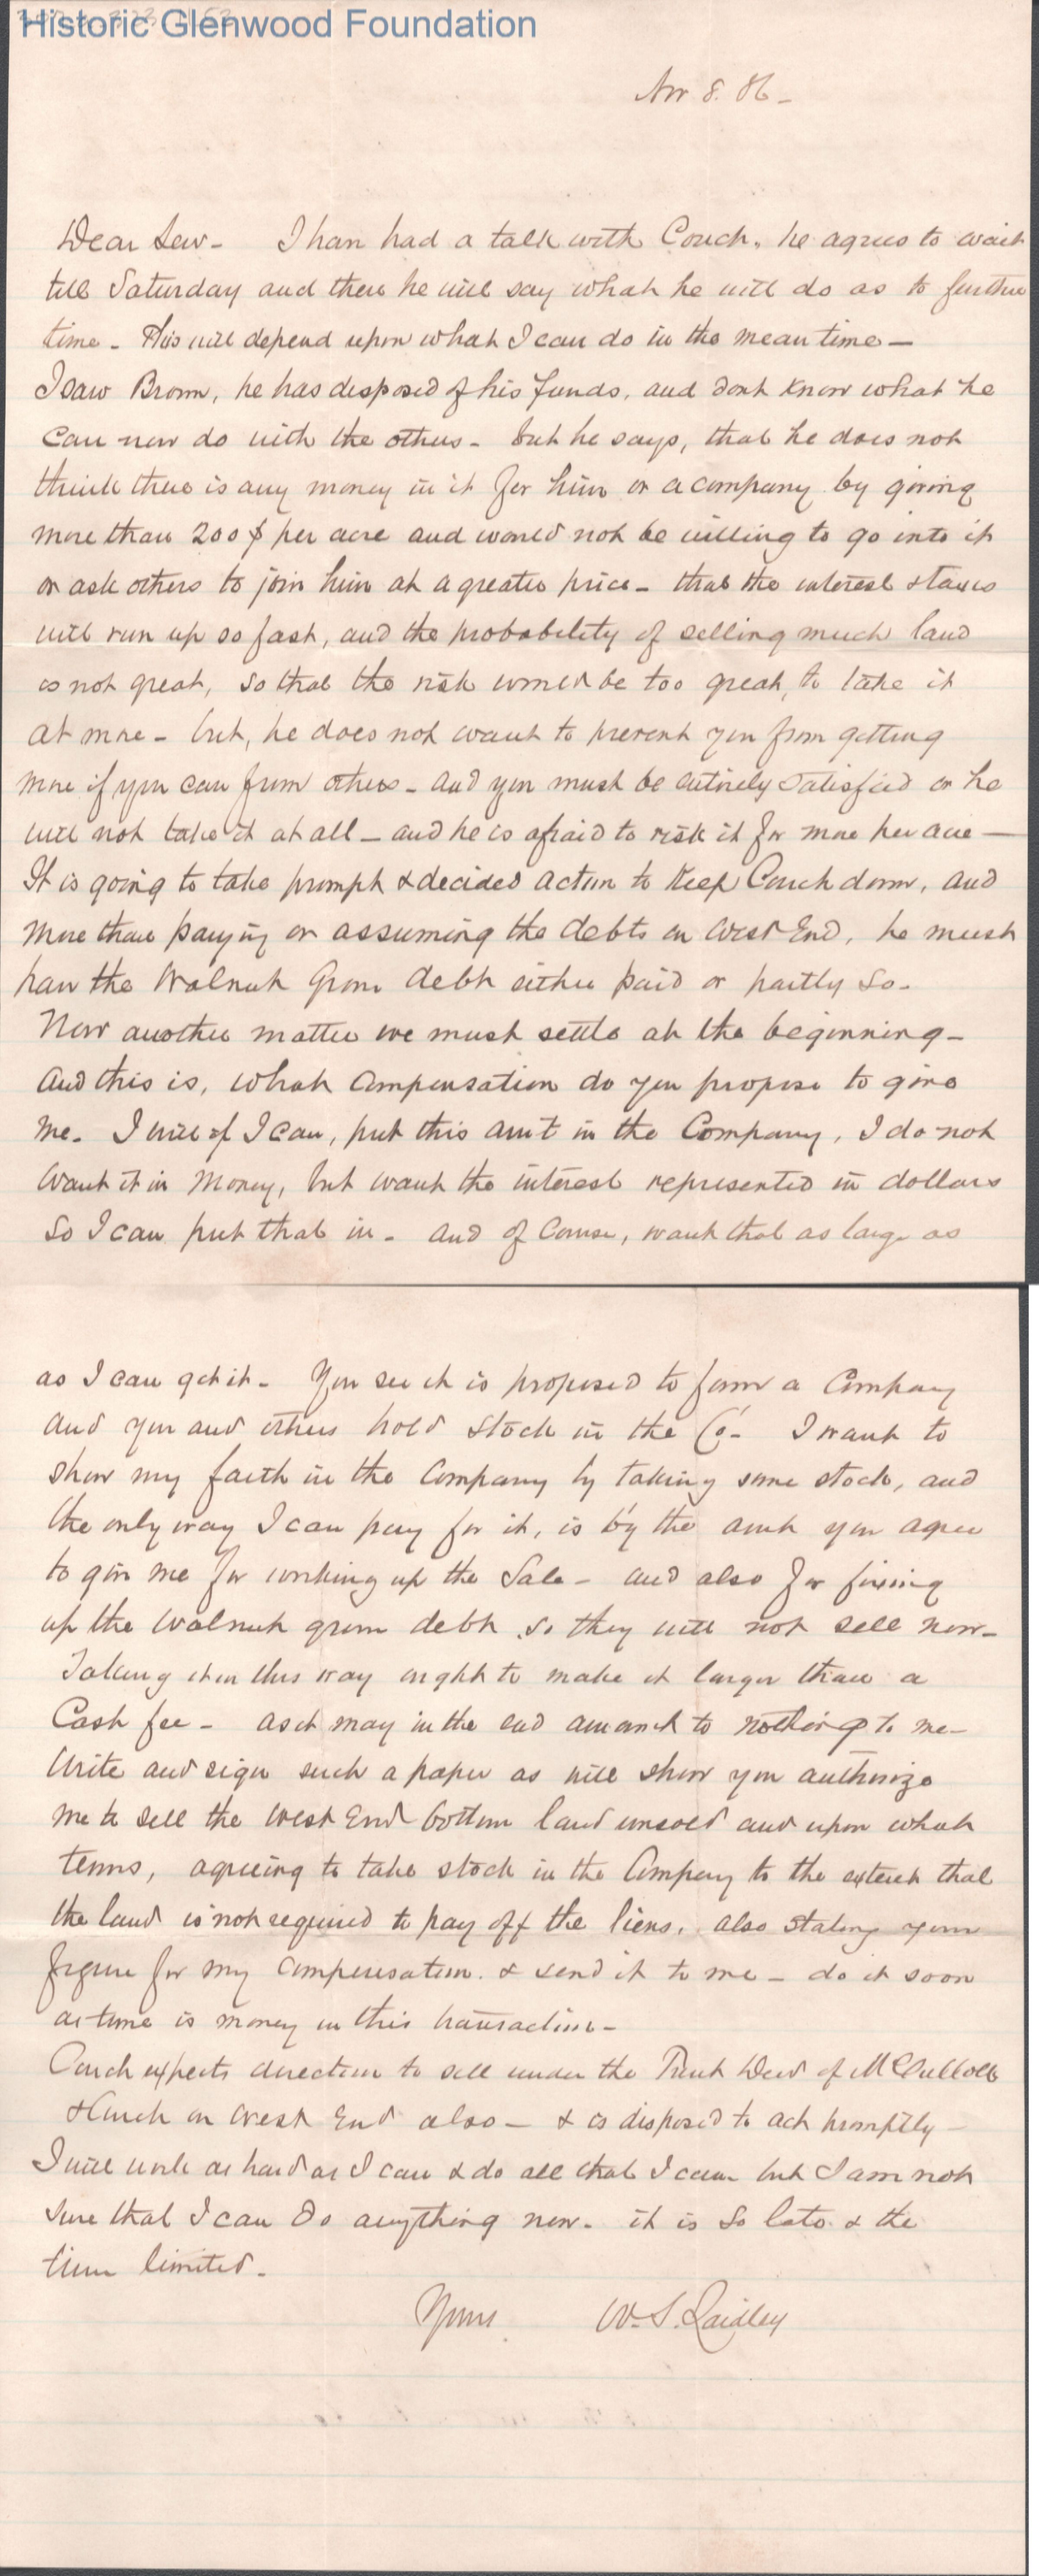 Historic Glenwood Foundation
Nov 8. 86 -
Dear Lew - I have had a talk with Couch, he agrees to wait
till Saturday and then he will say what he will do as to further
time - This will depend upon what I can do in the mean time -
I saw Brown, he has disposed of his funds, and dont know what he
can now do with the others - but he says, that he does not
think there is any money in it for him or a company by giving
more than 200 $ per acre and would not be willing to go into it
or ask others to join him at a greater price - that the interest & taxes
will run up so fast, and the probability of selling much land
is not great, so that the risk would be too great, to take it
at more - but, he does not want to prevent you from getting
more if you can from others - and you must be entirely satisfied or he
will not take it at all - and he is afraid to risk it for more per acre -
It is going to take prompt & decided action to keep Couch down, and
more than paying or assuming the debts on West End, he must
have the Walnut Grove debt either paid or partly so -
Now another matter we must settle at the beginning -
And this is, what compensation do you propose to give
me. I will if I can, put this am't in the Company, I do not
want it in money, but want the interest represented in dollars
so I can put that in - and of course, want that as large as
as I can get it - You see it is proposed to form a Company
and you and others hold stock in the Co - I want to
show my faith in the Company by taking some stock, and
the only way I can pay for it, is by the amt you agree
to give me for working up the Sale - and also for fixing
up the Walnut grove debt so they will not sell now -
Taking it in this way ought to make it larger than a
Cash fee - as it may in the end amount to nothing to me -
Write and sign such a paper as will show you authorize
me to sell the West End bottom land unsold and upon what
terms, agreeing to take stock in the Company to the extent that
the land is not required to pay off the liens, also stating your
figure for my compensation. & send it to me - do it soon
as time is money in this transaction -
Couch expects direction to sell under the Trust Deed of McCulloch
& Couch on West End also - & is disposed to act promptly -
I will work as hard as I can & do all that I can but I am not
sure that I can do anything now - it is so late & the
time limited -
Yours W. S. Laidley